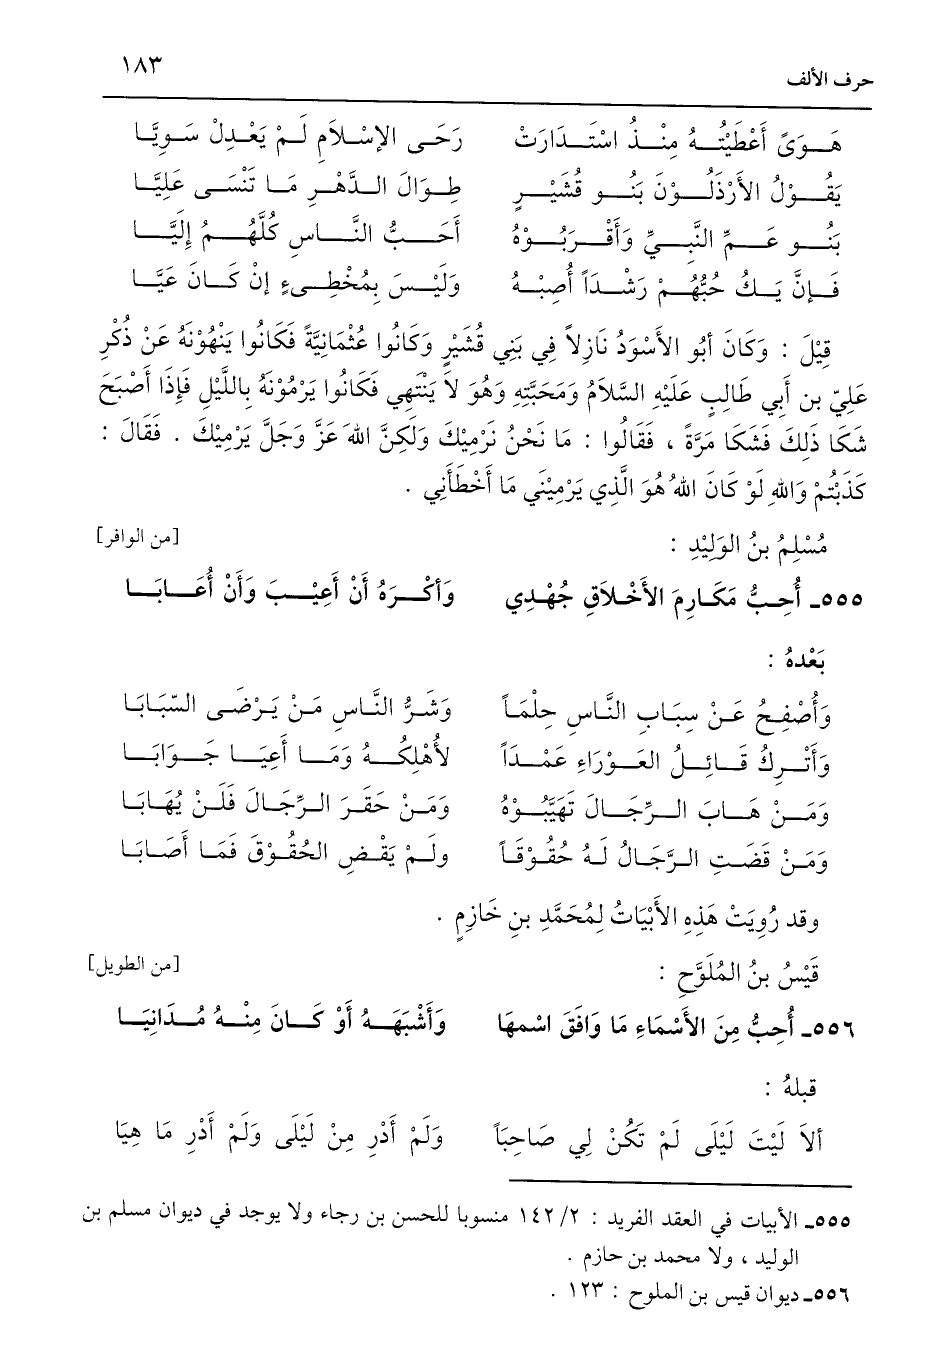 حرف الألف ١٨٣
هَوَىً أَعْطَيْتُهُ مِنْذُ اسْتَدَارَتْ رَحَى الإسْلَامِ لَمْ يَعْدِلْ سَوِيَّا
يَقُوْلُ الأَرْذَلُوْنَ بَنُو قُشَيْرٍ طِوَالَ الدَّهْرِ مَا تَنْسَى عَلِيَّا
بَنُو عَمِّ النَّبِيِّ وَأَقْرَبُوْهُ أَحَبُّ النَّاسِ كُلَّهُمُ إِلَيَّا
فَإنَّ يَكُ حُبُّهُمْ رَشْداً أُصِبْهُ وَلَيْسَ بِمُخْطِىءٍ إنْ كَانَ غَيَّا
قِيْلَ : وَكَانَ أبُو الأسْوَدُ نَازِلاً فِي بَنِي قُشَيْرٍ وَكَانُوا عُثْمَانِيَّةً فَكَانُوا يَنْهُوْنَهُ عَنْ ذُكْرِ
عَلِيّ بن أَبي طَالِبٍ عَلَيْهِ السَّلاَمُ وَمَحَبَّتِهِ وَهُوَ لاَ يَنْتَهِي فَكَانُوا يَرْمُوْنَهُ بِاللَّيْلِ فَإذَا أصْبَحَ
شَكَا ذَلِكَ فَشَكَا مَرَّةً ، فَقَالُوا : مَا نَحْنُ نَرْمِيْكَ وَلَكِنَّ اللهَ عَزَّ وَجَلَّ يَرْمِيْكَ . فَقَالَ :
كَذَبْتُمْ وَاللهِ لَوْ كَانَ اللهُ هُوَ الَّذِي يَرْمِيْنِي مَا أَخْطَأَنِي .
مُسْلِمُ بنُ الوَلِيْدِ : [من الوافر]
٥٥٥ـ أُحِبُّ مَكَارِمَ الأَخْلَاقِ جُهْدِي وَأكْرَهُ أنْ أَعِيْبَ وَأَنْ أُعَابَا
بَعْدهُ :
وَأُصْفِحُ عَنْ سِبَابِ النَّاسِ حِلْمَاً وَشَرُّ النَّاسِ مَنْ يَرْضَى السّبَابَا
وَأَتْرِكُ قَائِلُ العَوْرَاءِ عَمْدَاً لأُهْلِكهُ وَمَا أَعيَا جَوَابَا
وَمَنْ هَابَ الرِّجَالَ تَهَيَّبُوْهُ وَمَنْ حَقَرَ الرِّجَالَ فَلَنْ يُهَابَا
وَمَنْ قَضَتِ الرَّجَالُ لَهُ حُقُوْقَاً ولَمْ يَقْضِ الحُقُوْقَ فَمَا أصَابَا
وقد رُوِيَتْ هَذِهِ الأَبْيَاتُ لِمُحَمَّدِ بنِ خَازِمٍ .
قَيْسُ بنُ المُلَوَّحِ : [من الطويل]
٥٥٦ـ أُحِبُّ مِنَ الأَسْمَاءِ مَا وَافَقَ اسْمهَا وَأَشْبَهَهُ أَوْ كَانَ مِنْهُ مُدَانِيَا
قبلهُ :
ألاَ لَيْتَ لَيْلَى لَمْ تَكُنْ لِي صَاحِبَاً وَلَمْ أَدْرِ مِنْ لَيْلَى وَلَمْ أَدْرِ مَا هِيَا
٥٥٥ـ الأبيات في العقد الفريد : ١٤٢/٢ منسوبا للحسن بن رجاء ولا يوجد في ديوان مسلم بن
الوليد ، ولا محمد بن حازم .
٥٥٦ـ ديوان قيس بن الملوح : ١٢٣ .